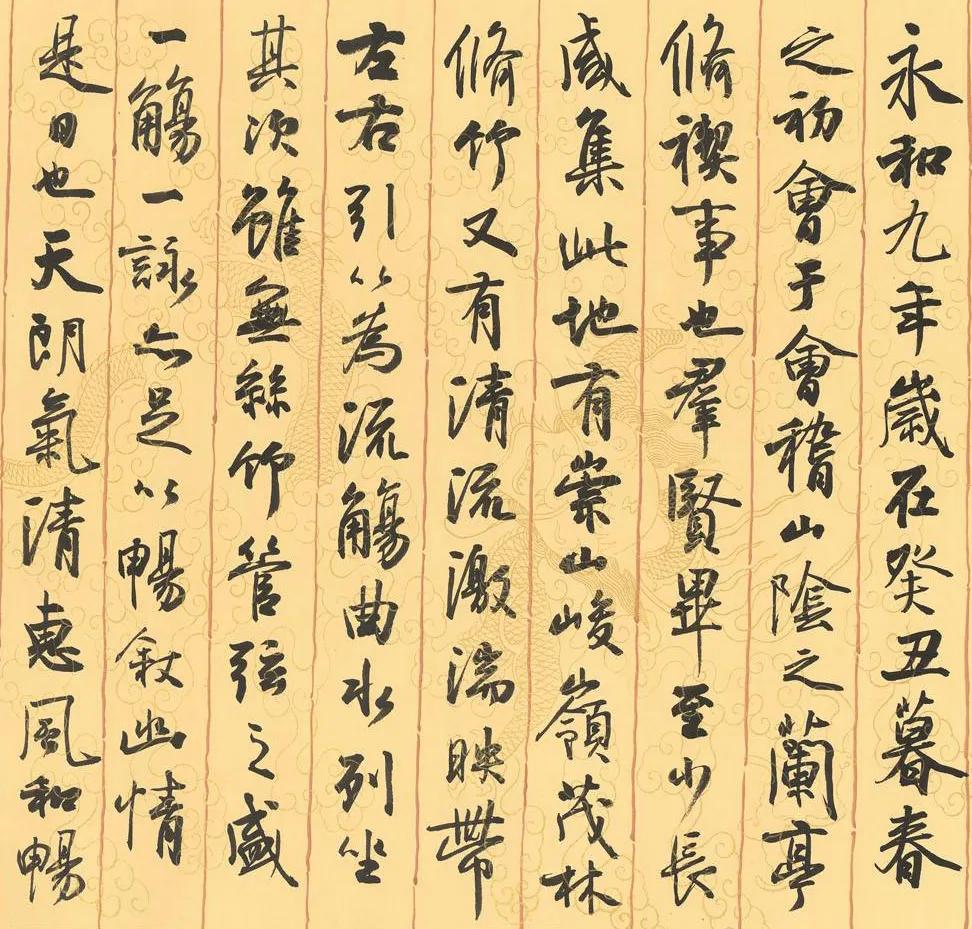 永和九年歲在癸丑暮春
之初會于會稽山陰之蘭亭
脩禊事也羣賢畢至少長
咸集此地有崇山峻嶺茂林
脩竹又有清流激湍映帶
左右引以為流觴曲水列坐
其次雖無絲竹管弦之盛
一觴一詠亦足以暢敘幽情
是日也天朗氣清惠風和暢